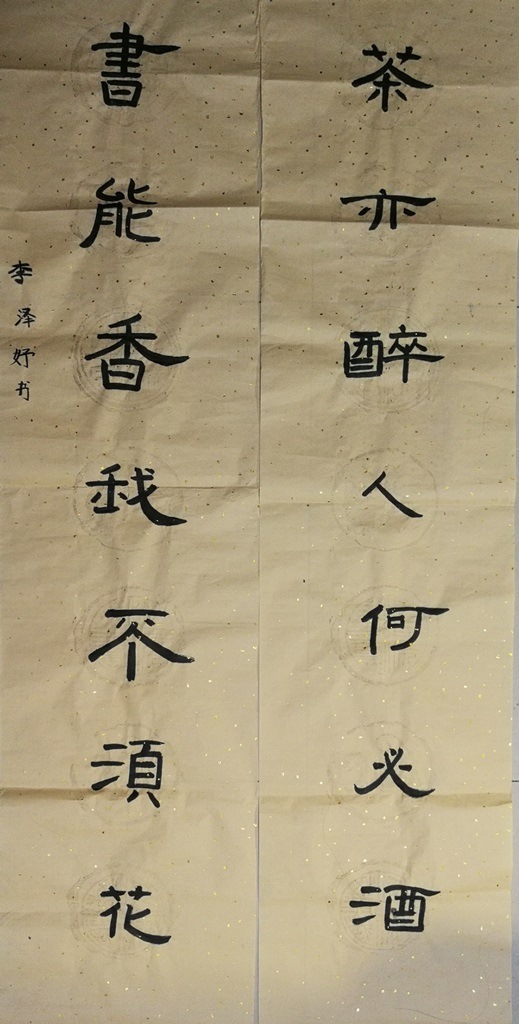 茶亦醉人何必酒
書能香我不須花
李泽妤书